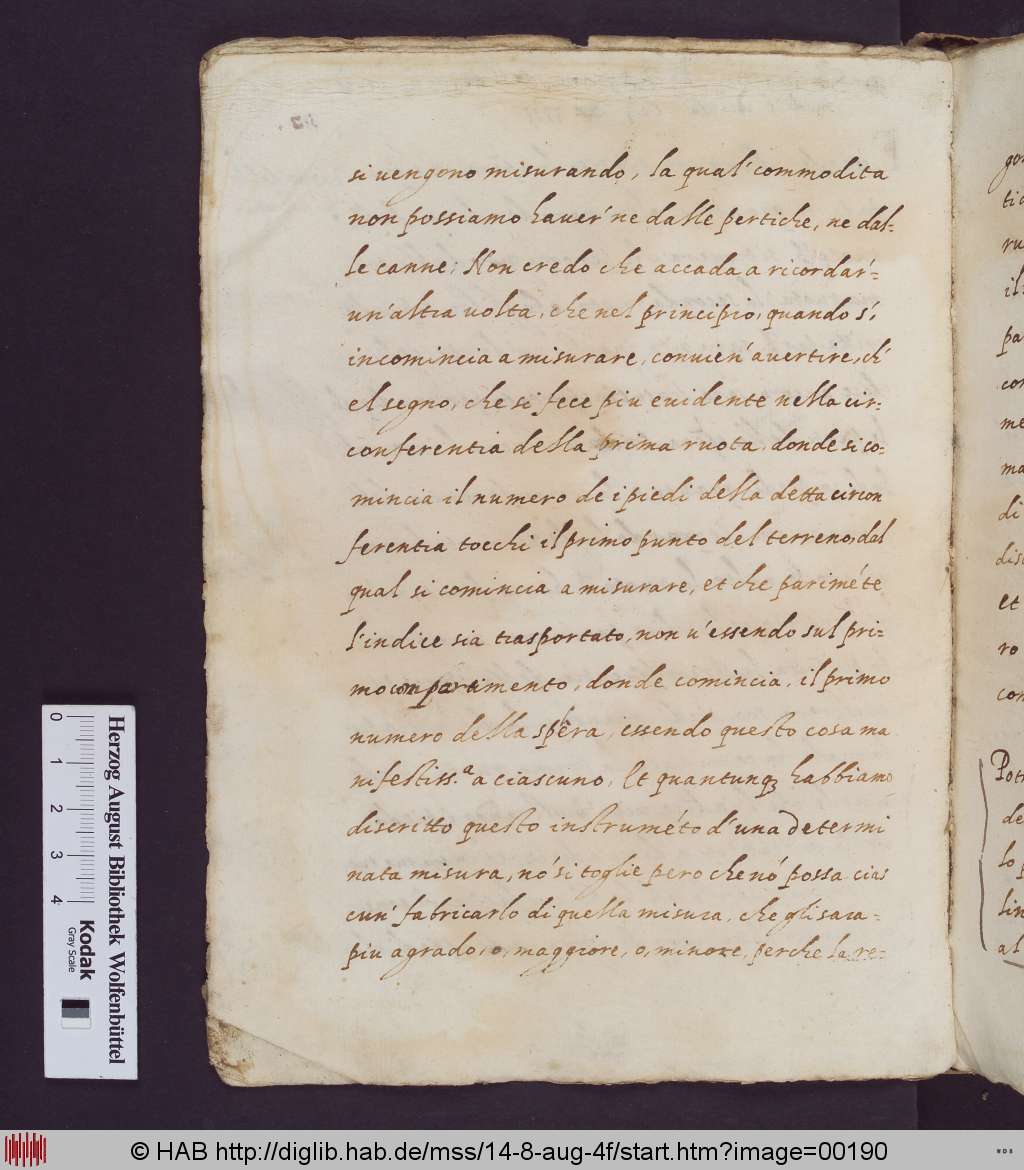 si uengono misurando, la qual' commodita
non possiamo hauer' ne dalle pertiche, ne dal-
le canne; Non credo che accada a ricordar'
un'altra uolta, che nel principio, quando s',
incomincia a misurare, conuien' auertire, ch'
el segno, che si fece piu euidente nella cir-
conferentia della prima ruota, donde si co-
mincia il numero de i piedi della detta circon
ferentia tocchi il primo punto del terreno, dal
qual si comincia a misurare, et che pariméte
l'indice sia trasportato, non u'essendo sul pri-
mo conpartimento, donde comincia, il primo
numero della sphera, essendo questo cosa ma
nifestiss.ª a ciascuno, Et quantunqꝫ habbiamo
discritto questo instruméto d'una determi
nata misura, nó si toglie pero che nó possa cias
cun' fabricarlo di quella misura, che gli sara-
piu agrado, o, maggiore, o, minore, perche la re-
go
tic
ru
il
pa
con
me
ma
di
disc
et
ro
con
Pot
de
lo p
lin
al
0
1
2
3
4
Herzog August Bibliothek Wolfenbüttel
Kodak
Gray Scale
© HAB http://diglib.hab.de/mss/14-8-aug-4f/start.htm?image=00190